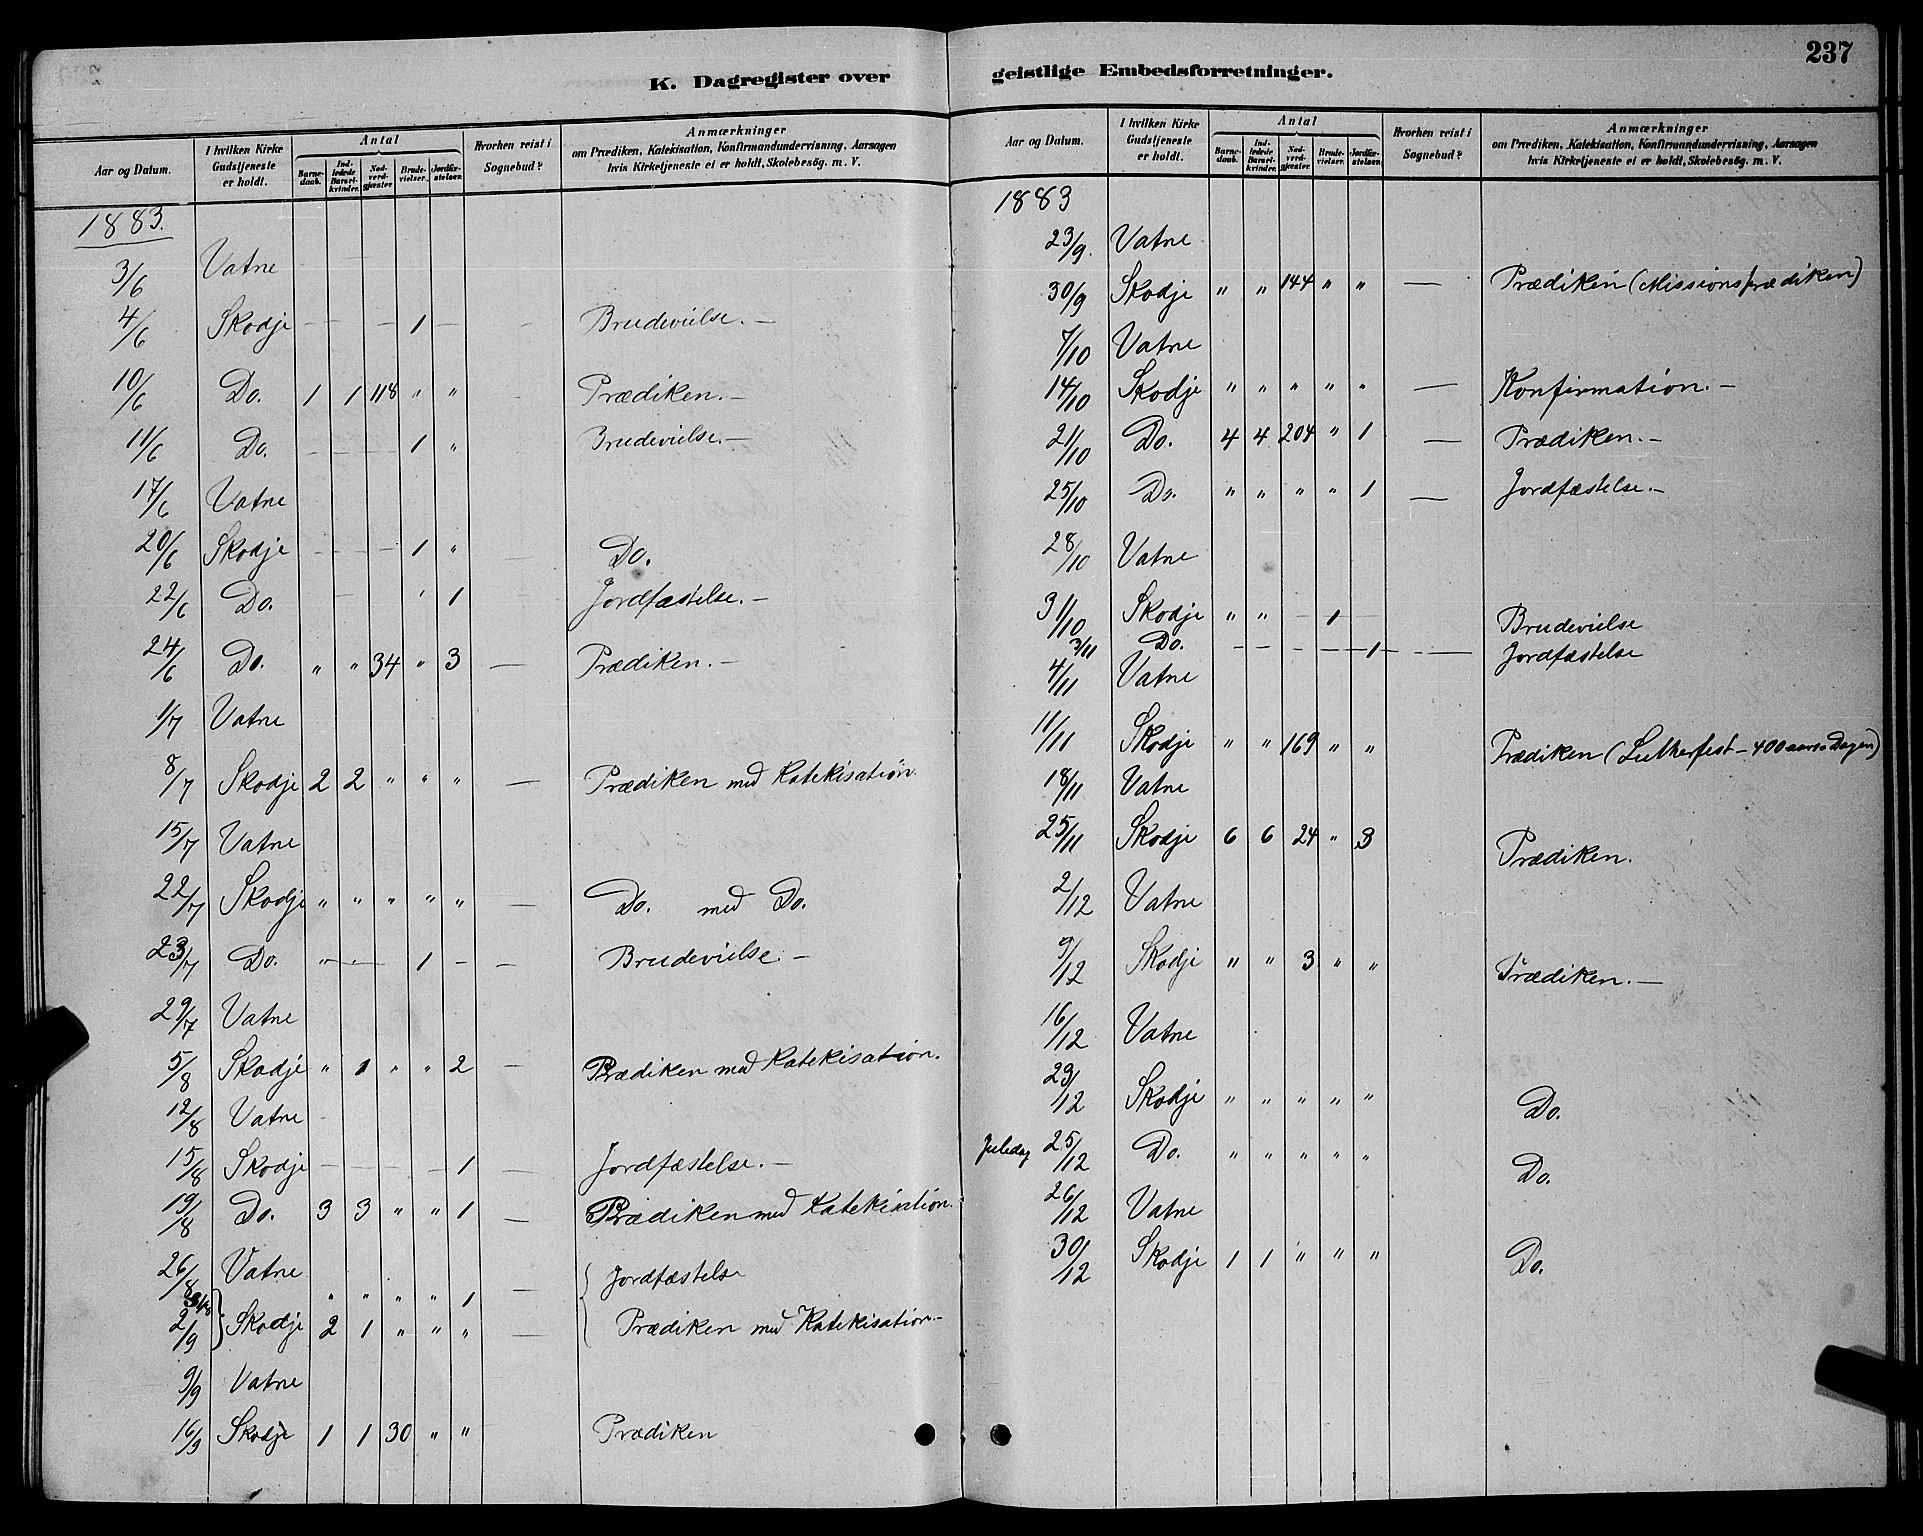 237
K. Dagregister over geistlige Embedsforretninger.
Aar og Datum. I hvilken Kirke Gudstjeneste er holdt. Antal Barnedaab. Indledede Barselkvinder. Nadverdgjæster. Brudevielser. Jordfæstelser. Hvorhen reist i Sognebud? Anmærkninger om Prædiken, Katekisation, Konfirmandundervisning, Aarsagen hvis Kirketjeneste ei er holdt, Skolebesög. m. V.
1883.
3/6 Vatne
4/6 Skodje — — — 1 — — Brudevielse. —
10/6 Do. 1 1 118 " " — Prædiken. —
11/6 Do. — — — 1 " Brudevielse. —
17/6 Vatne
20/6 Skodje — — — 1 " — Do.
22/6 Do. — — ' 1 — Jordfæstelse. —
24/6 Do. " " 34 " 3 — Prædiken. —
1/7 Vatne
8/7 Skodje 2 2 " " " — Prædiken med Katekisation.
15/7 Vatne
22/7 Skodje " " " " " — Do. med Do.
23/7 Do. " — — 1 — — Brudevielse. —
29/7 Vatne
5/8 Skodje " 1 " " 2 — Prædiken med Katekisation.
12/8 Vatne
15/8 Skodje — — — — 1 — Jordfæstelse. —
19/8 Do. 3 3 " " 1 — Prædiken med Katekisation.
26/8 Vatne
31/8 " " " " 1 — Jordfæstelse
2/9 Skodje 2 1 " " " — Prædiken med Katekisation. —
9/9 Vatne
16/9 Skodje 1 1 30 " " Prædiken
Aar og Datum. I hvilken Kirke Gudstjeneste er holdt. Antal Barnedaab. Indledede Barselkvinder. Nadverdgjæster. Brudevielser. Jordfæstelser. Hvorhen reist i Sognebud? Anmærkninger om Prædiken, Katekisation, Konfirmandundervisning, Aarsagen hvis Kirketjeneste ei er holdt, Skolebesög. m. V.
1883
23/9 Vatne
30/9 Skodje " " 144 " " — Prædiken (Missionsprædiken)
7/10 Vatne
14/10 Skodje " " " " " — Konfirmation. —
21/10 Do. 4 4 204 " 1 — Prædiken. —
25/10 Do. " " " " 1 — Jordfæstelse. —
28/10 Vatne
31/10 Skodje " " — 1 — Brudevielse
3/11 Do. — — — — 1 — Jordfæstelse
4/11 Vatne
11/11 Skodje " " 169 " " Prædiken (Lutherfest — 400 aars Dagen)
18/11 Vatne
25/11 Skodje 6 6 24 " 3 Prædiken.
2/12 Vatne
9/12 Skodje " " 3 " " Prædiken. —
16/12 Vatne
23/12 Skodje " " " " " Do.
Juledag 25/12 Do. " " " " " Do.
26/12 Vatne
30/12 Skodje 1 1 " " " Do.